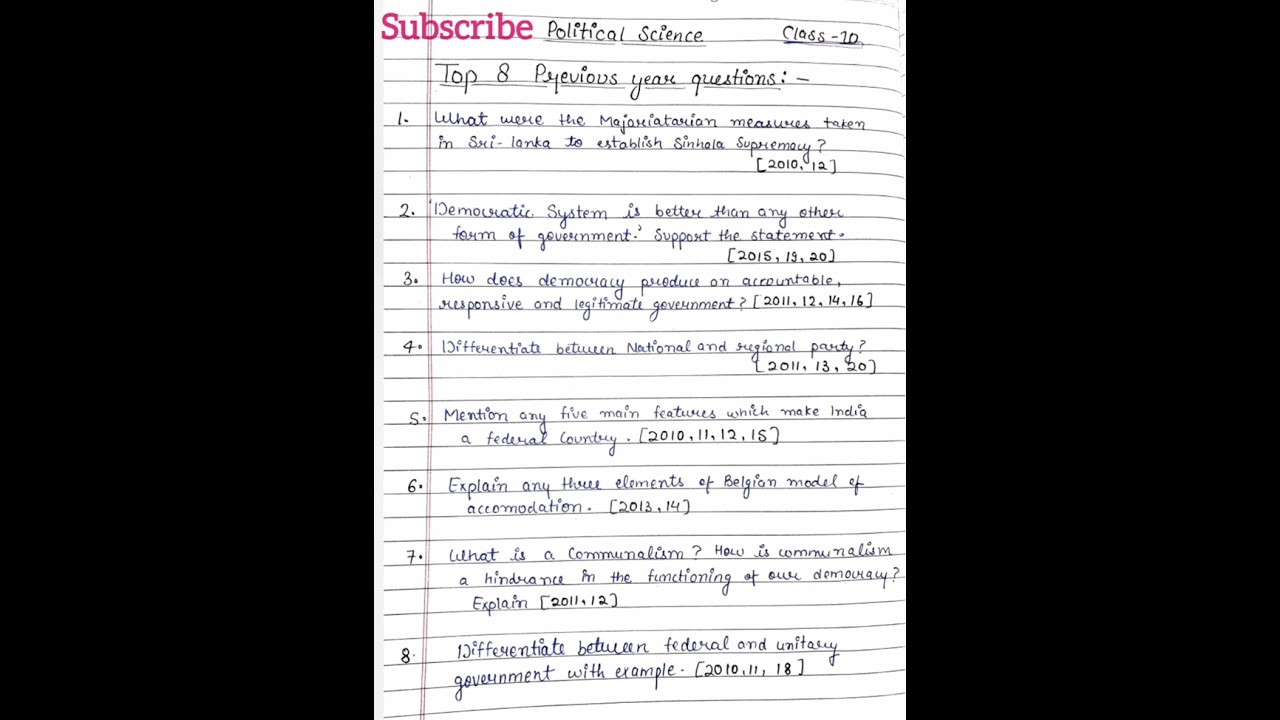 Subscribe Political Science Class-10
Top 8 Previous year questions:-
1. What were the Majoriatarian measures taken
in Sri-lanka to establish Sinhala Supremacy?
[2010, 12]
2. 'Democratic System is better than any other
form of government.' Support the statement.
[2015, 19, 20]
3. How does democracy produce an accountable,
responsive and legitimate government? [2011, 12, 14, 16]
4. Differentiate between National and regional party?
[2011, 13, 20]
5. Mention any five main features which make India
a federal Country. [2010, 11, 12, 15]
6. Explain any three elements of Belgian model of
accomodation. [2013, 14]
7. What is a Communalism? How is communalism
a hindrance in the functioning of our democracy?
Explain [2011, 12]
8. Differentiate between federal and unitary
government with example. [2010, 11, 18]